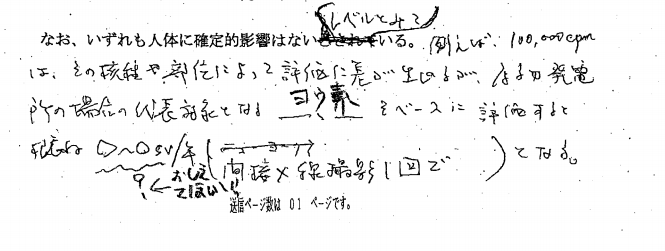 レベルとみて
なお、いずれも人体に確定的影響はないとされている。例えば、100,000cpm
は、その核種や部位によって評価に差が生じるが、原子力発電
所の場合の代表核種となるヨウ素をベースに評価すると
概ね〇~〇SV/年(間接X線撮影1回で)となる。
?←おしえてほしい!!
送信ページ数は 01 ページです。